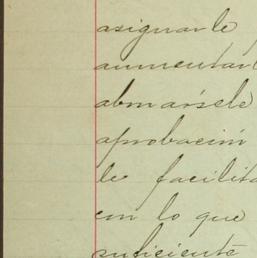 asignarle
aumentarl
abonársele
aprobación
le facilita
en lo que
suficiente